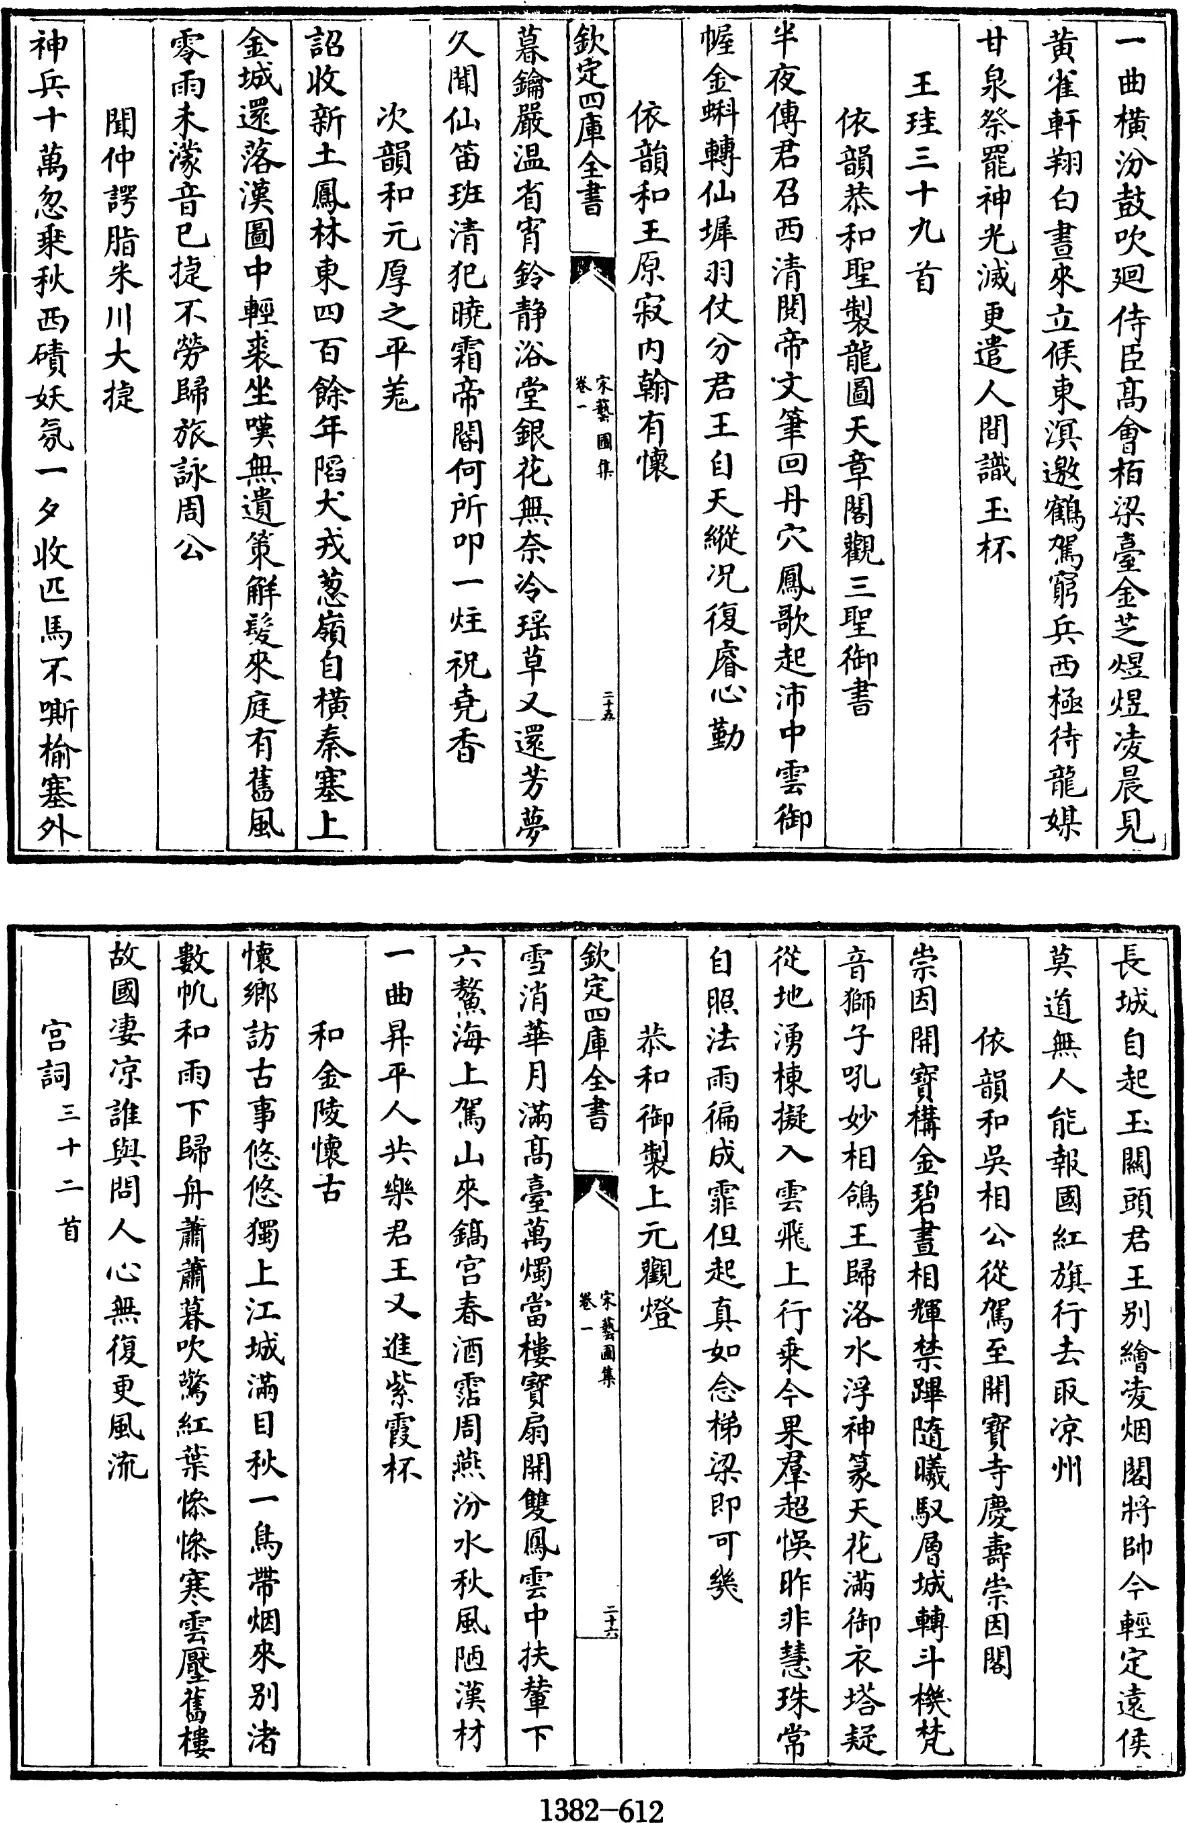 一曲橫汾鼓吹廻侍臣髙會栢梁臺金芝煜煜凌晨見
黄雀軒翔白晝來立候東溟邀鶴駕窮兵西極待龍媒
甘泉祭罷神光滅更遣人間識玉杯
王珪三十九首
依韻恭和聖製龍圖天章閣觀三聖御書
半夜傳君召西清閱帝文筆回丹穴鳳歌起沛中雲御
幄金蝌轉仙墀羽仗分君王自天縱况復睿心勤
依韻和王原寂内翰有懷
欽定四庫全書
宋藝圃集
卷一
二十五
暮鑰嚴温省宵鈴静浴堂銀花無奈冷瑶草又還芳夢
久聞仙笛班清犯曉霜帝閽何所叩一炷祝堯香
次韻和元厚之平羗
詔收新土鳳林東四百餘年陷犬戎葱嶺自橫秦塞上
金城還落漢圖中輕裘坐嘆無遺策解髮來庭有舊風
零雨未濛音已㨗不勞歸旅詠周公
聞仲諤脂米川大㨗
神兵十萬忽乗秋西磧妖氛一夕收匹馬不嘶榆塞外
長城自起玉闗頭君王别繪凌烟閣將帥今輕定逺侯
莫道無人能報國紅旗行去取凉州
依韻和吳相公從駕至開寳寺慶壽崇因閣
崇因開寳構金碧晝相輝禁蹕隨曦馭層城轉斗機梵
音獅子吼妙相鴿王歸洛水浮神篆天花滿御衣塔疑
從地湧棟擬入雲飛上行乗今果羣超悞昨非慧珠常
自照法雨徧成霏但起真如念梯梁即可㡬
恭和御製上元觀燈
欽定四庫全書
宋藝圃集
卷一
二十六
雪消華月滿髙臺萬燭當樓寳扇開雙鳳雲中扶輦下
六鰲海上駕山來鎬宫春酒霑周燕汾水秋風陋漢材
一曲昇平人共樂君王又進紫霞杯
和金陵懷古
懷鄉訪古事悠悠獨上江城滿目秋一鳥帶烟來别渚
數帆和雨下歸舟蕭蕭暮吹驚紅葉慘慘寒雲壓舊樓
故國凄凉誰與問人心無復更風流
宫詞三十二首
1382-612